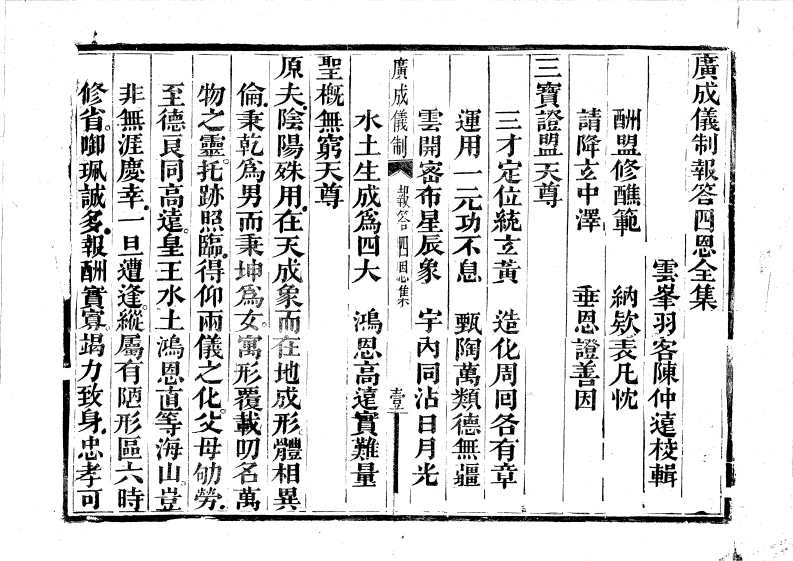 廣成儀制報答四恩全集
雲峯羽客陳仲遠校輯
酬盟修醮範　納欵表凡忱
請降玄中澤　垂恩證善因
三寶證盟天尊
三才定位統玄黃　造化周回各有章
運用一元功不息　甄陶萬類德無疆
雲開密布星辰象　宇內同沾日月光
廣成儀制　報答四恩集　壹
水土生成爲四大　鴻恩高遠實難量
聖概無窮天尊
原夫陰陽殊用在天成象而在地成形。體相異
倫秉乾爲男而秉坤爲女。寓形覆載叨名萬
物之靈。托跡照臨。得仰兩儀之化。父母劬勞。
至德良同高遠。皇王水土鴻恩直等海山。豈
非無涯慶幸。一旦遭逢。縱屬有陋形區六時
修省。啣珮誠多。報酬實寡。竭力致身。忠孝可